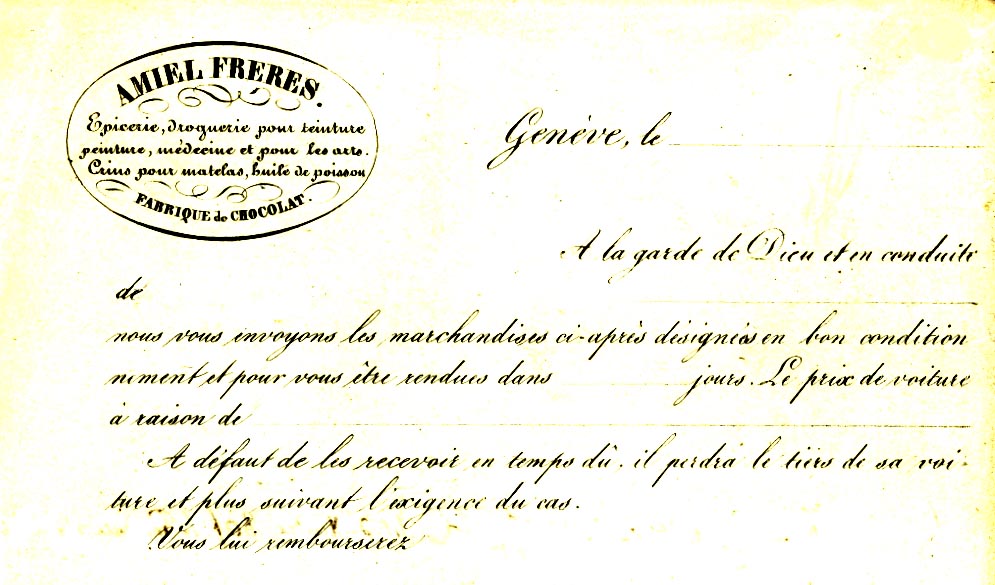 AMIEL FRERES.
Epicerie, droguerie pour teinture
peinture, médecine et pour les arts.
Crins pour matelas, huile de poisson
FABRIQUE de CHOCOLAT.
Genève, le
A la garde de Dieu et en conduite
de
nous vous envoyons les marchandises ci-après désignées en bon condition
nement et pour vous être rendues dans jours. Le prix de voiture
à raison de
A défaut de les recevoir en temps dû. il perdra le tiers de sa voi-
ture et plus suivant l'exigence du cas.
Vous lui rembourserez